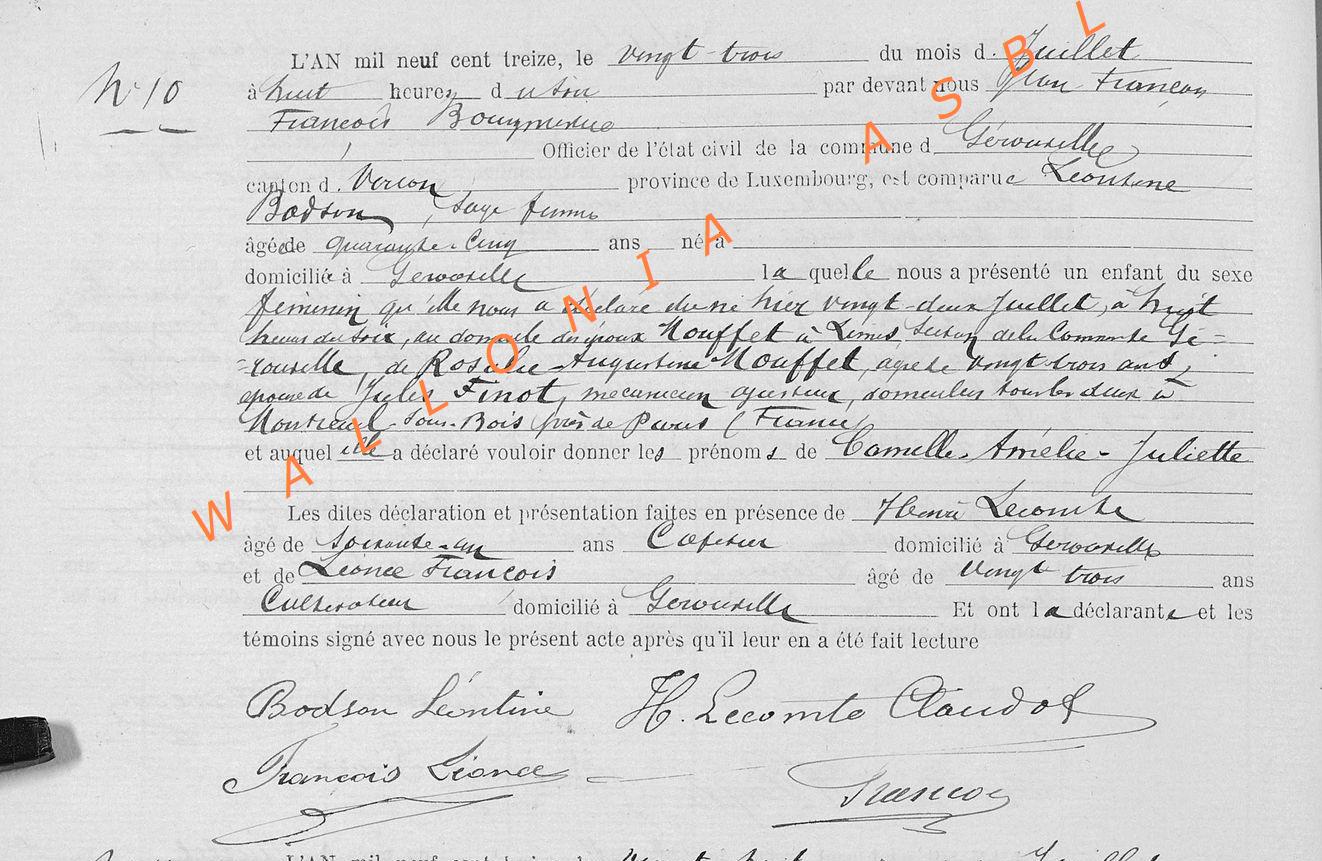 N° 10
L'AN mil neuf cent treize, le vingt-trois du mois d. Juillet
à huit heures du soir par devant nous Jean François
François Bourgmestre
Officier de l'état civil de la commune d. Gérouville
canton d. Virton, province de Luxembourg, est comparue Léontine
Bodson, sage femme
âgée de quarante-cinq ans né à
domiciliée à Gérouville laquelle nous a présenté un enfant du sexe
féminin qu'elle nous a déclaré être né hier vingt-deux Juillet, à huit
heures du soir, au domicile des époux Mouffet à Limes, section de la Commune Gé-
-rouville, de Rosalie-Augustine Mouffet, agée de vingt-trois ans,
épouse de Jules Finot, mécanicien ajusteur, domiciliés tous les deux à
Montreuil-sous-Bois près de Paris (France)
et auquel elle a déclaré vouloir donner les prénoms de Camille-Amélie-Juliette
Les dites déclaration et présentation faites en présence de Henri Lecomte
âgé de soixante-un ans Cafetier domicilié à Gérouville
et de Léonce François âgé de vingt trois ans
Cultivateur domicilié à Gérouville Et ont la déclarante et les
témoins signé avec nous le présent acte après qu'il leur en a été fait lecture
Bodson Léontine H. Lecomte Claudot
François Léonce François
L'AN mil neuf cent treize, le vingt-huit Juillet
WALLONIA ASBL